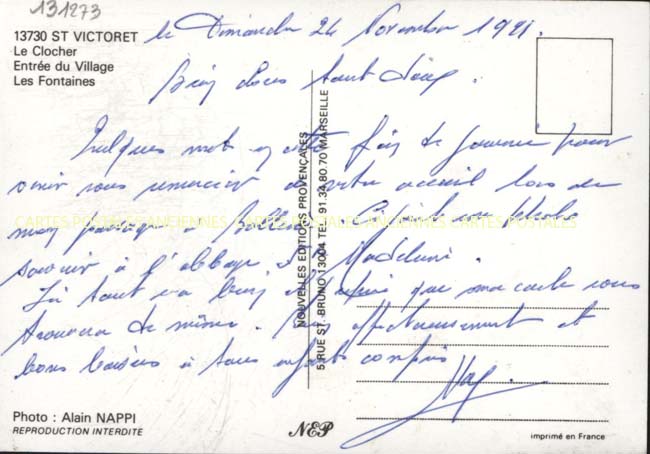 131273
13730 ST VICTORET
Le Clocher
Entrée du Village
Les Fontaines
le Dimanche 24 Novembre 1991.
Bien chers tout
Quelques mots en cette fin de journée pour
venir vous remercier de votre accueil lors de
mon passage à
souvenir à l'abbaye
J'ai tout va bien et que ma carte vous
trouvera de même. affectueusement et
bons baisers à tous enfants compris
CARTES POSTALES ANCIENNES CARTES POSTALES ANCIENNES CARTES POSTALES
NOUVELLES EDITIONS PROVENÇALES
5 RUE ST. BRUNO 13004 TEL. 91.34.80.70 MARSEILLE
Photo : Alain NAPPI
REPRODUCTION INTERDITE
NEP
imprimé en France